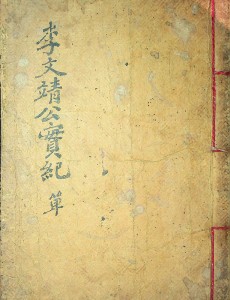 李文靖公實紀 單